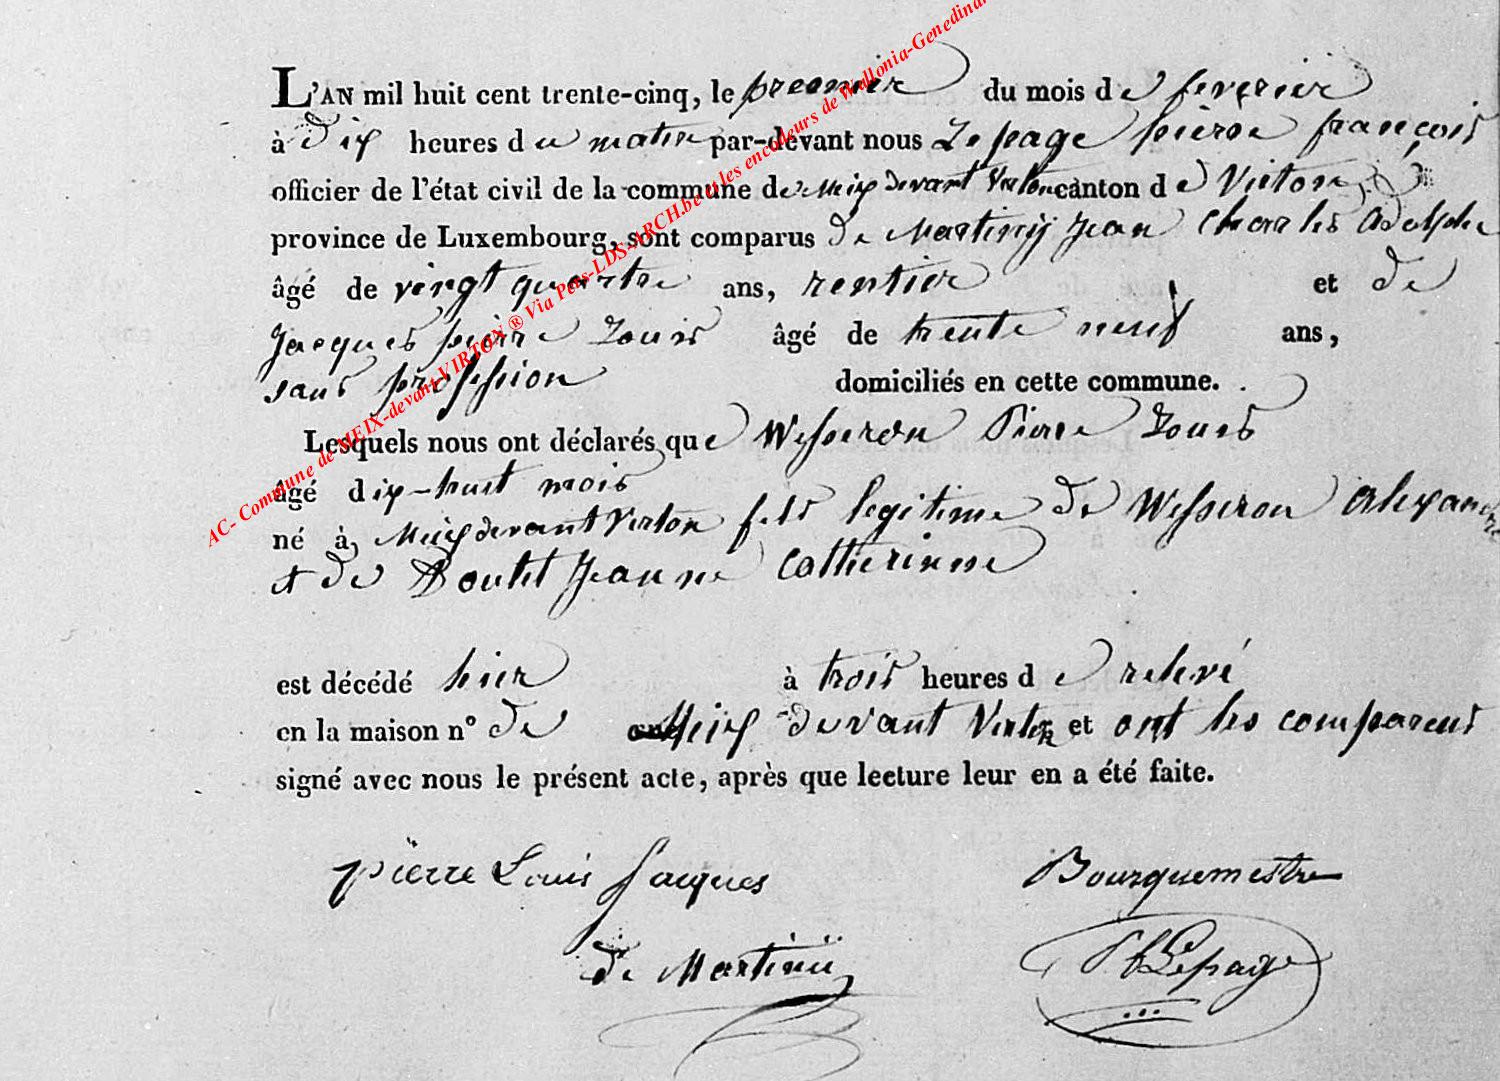 L'AN mil huit cent trente-cinq, le premier du mois de feverier
à dix heures du matin par-devant nous Lepage pierre françois
officier de l'état civil de la commune de Meix devant Virton canton de Virton
province de Luxembourg, sont comparus de Martinÿ Jean Charles Adolphe
âgé de vingt quatre ans, rentier et de
Jacques pierre Louis âgé de trente neuf ans,
sans profession domiciliés en cette commune.
Lesquels nous ont déclarés que Wesseron Pierre Louis
âgé dix-huit mois
né à Meix devant Virton fils legitime de Wesseron Alexandre
et de Doutet Jeanne Catherinne
est décédé hier à trois heures de relevé
en la maison nº de Meix devant Virton et ont les comparens
signé avec nous le présent acte, après que lecture leur en a été faite.
pierre Louis Jacques Bourguemestre
de Martinÿ Lepage
AC- Commune de MEIX-devant-VIRTON ® Via Pers-LDS-ARCH.be et les encodeurs de Wallonia-Genedinar